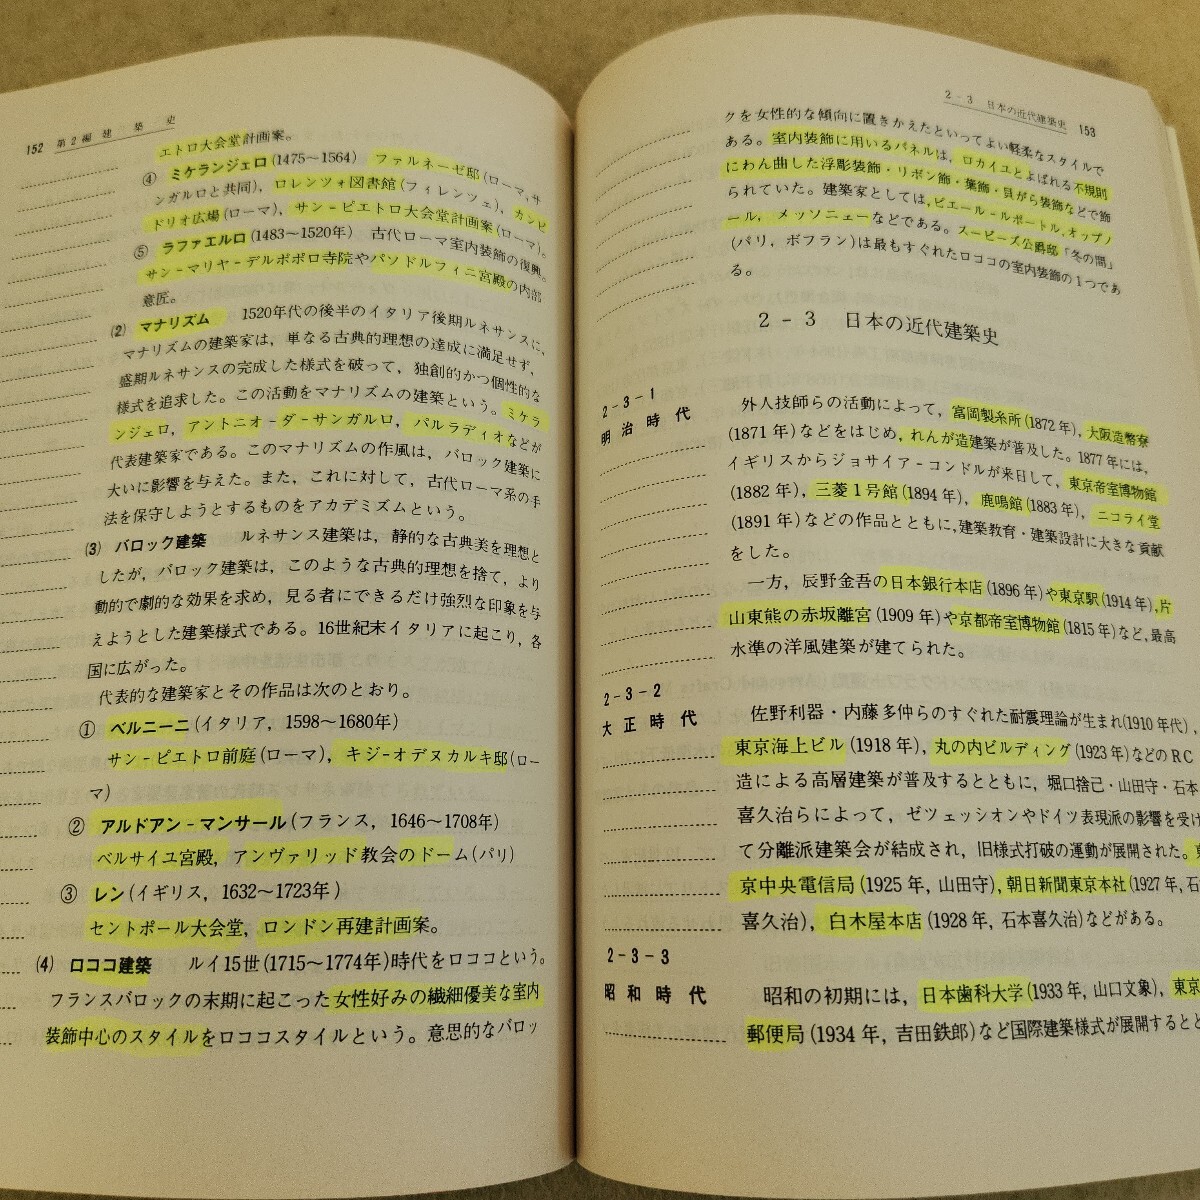 152 第2編 建築史
エトロ大会堂計画案。
④ ミケランジェロ(1475〜1564) ファルネーゼ邸(ローマ,サ
ンガルロと共同),ロレンツォ図書館(フィレンツェ),カンピ
ドリオ広場(ローマ),サン-ピエトロ大会堂計画案(ローマ)。
⑤ ラファエルロ(1483〜1520年) 古代ローマ室内装飾の復興。
サン-マリヤ-デルポポロ寺院やパンドルフィニ宮殿の内部
意匠。
(2) マナリズム 1520年代の後半のイタリア後期ルネサンスに,
マナリズムの建築家は,単なる古典的理想の達成に満足せず,
盛期ルネサンスの完成した様式を破って,独創的かつ個性的な
様式を追求した。この活動をマナリズムの建築という。ミケラ
ンジェロ,アントニオ-ダ-サンガルロ,パルラディオなどが
代表建築家である。このマナリズムの作風は,バロック建築に
大いに影響を与えた。また,これに対して,古代ローマ系の手
法を保守しようとするものをアカデミズムという。
(3) バロック建築 ルネサンス建築は,静的な古典美を理想と
したが,バロック建築は,このような古典的理想を捨て,より
動的で劇的な効果を求め,見る者にできるだけ強烈な印象を与
えようとした建築様式である。16世紀末イタリアに起こり,各
国に広がった。
代表的な建築家とその作品は次のとおり。
① ベルニーニ(イタリア,1598〜1680年)
サン-ピエトロ前庭(ローマ),キジ-オデスカルキ邸(ロー
マ)
② アルドアン-マンサール(フランス,1646〜1708年)
ベルサイユ宮殿,アンヴァリッド教会のドーム(パリ)
③ レン(イギリス,1632〜1723年)
セントポール大会堂,ロンドン再建計画案。
(4) ロココ建築 ルイ15世(1715〜1774年)時代をロココという。
フランスバロックの末期に起こった女性好みの繊細優美な室内
装飾中心のスタイルをロココスタイルという。意思的なバロッ
2-3 日本の近代建築史 153
クを女性的な傾向に置きかえたといってよい軽柔なスタイルで
ある。室内装飾に用いるパネルは,ロカイユとよばれる不規則
にわん曲した浮彫装飾・リボン飾・葉飾・貝がら装飾などで飾
られていた。建築家としては,ピエール-ルポートル,オップノ
ール,メッソニューなどである。スービーズ公爵邸「冬の間」
(パリ,ボフラン)は最もすぐれたロココの室内装飾の1つであ
る。
2-3 日本の近代建築史
2-3-1
明治時代
外人技師らの活動によって,富岡製糸所(1872年),大阪造幣寮
(1871年)などをはじめ,れんが造建築が普及した。1877年には,
イギリスからジョサイア-コンドルが来日して,東京帝室博物館
(1882年),三菱1号館(1894年),鹿鳴館(1883年),ニコライ堂
(1891年)などの作品とともに,建築教育・建築設計に大きな貢献
をした。
一方,辰野金吾の日本銀行本店(1896年)や東京駅(1914年),片
山東熊の赤坂離宮(1909年)や京都帝室博物館(1815年)など,最高
水準の洋風建築が建てられた。
2-3-2
大正時代
佐野利器・内藤多仲らのすぐれた耐震理論が生まれ(1910年代),
東京海上ビル(1918年),丸の内ビルディング(1923年)などのRC
造による高層建築が普及するとともに,堀口捨己・山田守・石本
喜久治らによって,ゼツェッションやドイツ表現派の影響を受け
て分離派建築会が結成され,旧様式打破の運動が展開された。東
京中央電信局(1925年,山田守),朝日新聞東京本社(1927年,石
喜久治),白木屋本店(1928年,石本喜久治)などがある。
2-3-3
昭和時代
昭和の初期には,日本歯科大学(1933年,山口文象),東京
郵便局(1934年,吉田鉄郎)など国際建築様式が展開すると